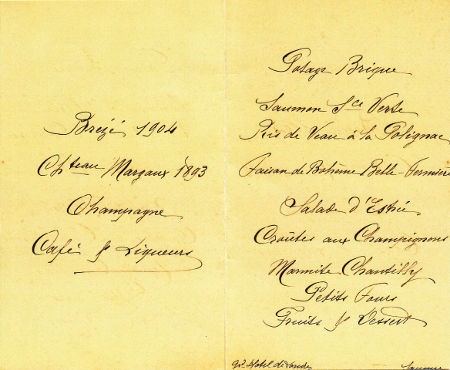 Brézé 1904
Chteau Margaux 1893
Champagne
Café & Liqueurs
Potage Brique
Saumon Sce Verte
Ris de Veau à la Polignac
Faisan de Bohème Belle-Fermière
Salade d'Estrée
Croûtes aux Champignons
Marmite Chantilly
Petits Fours
Fruits & Dessert
Gd Hotel
Saumur